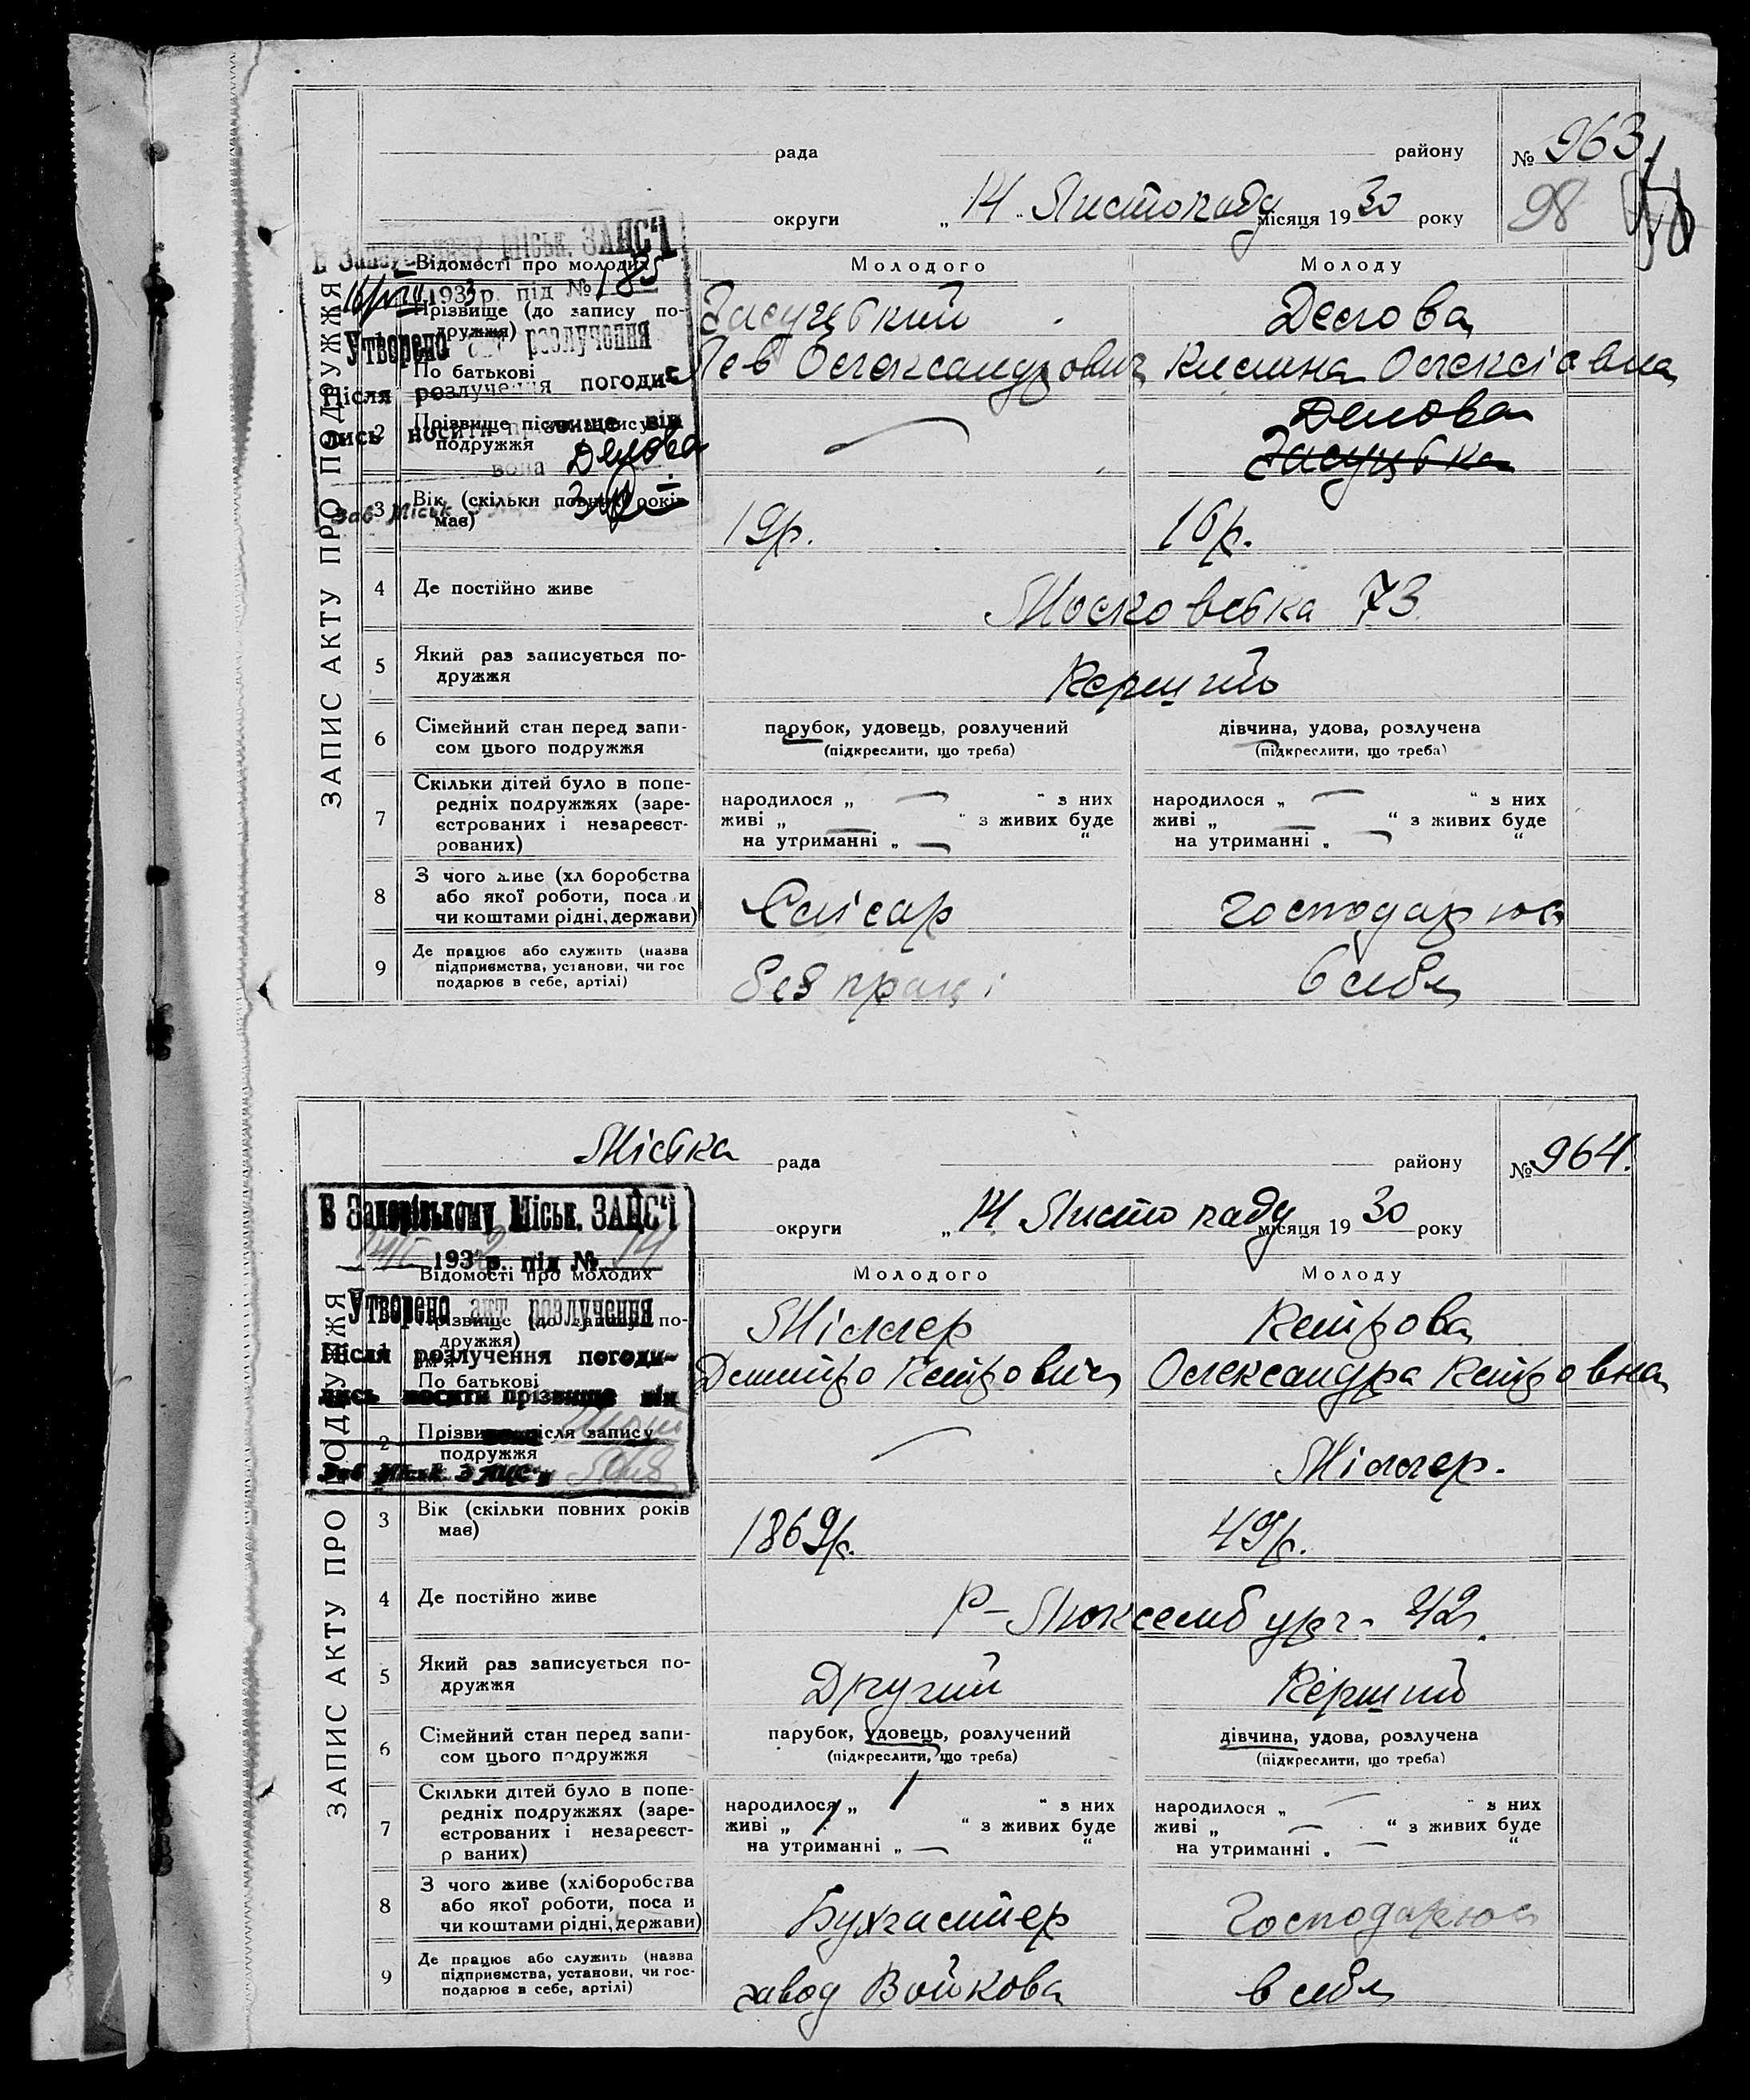 рада району № 963
округи „14“ Листопаду місяця 1930 року 98
В Запорізькому Міськ. ЗАПС'і
1933 р. під № 185
Утворено акт розлучення
Після розлучення погодились носити прізвище він
вона Делова
ЗАПИС АКТУ ПРО ПОДРУЖЖЯ
Відомості про молодих Молодого Молоду
Прізвище (до запису подружжя) Засуцький Делова
По батькові Лев Олександрович Олексіевна
2 Прізвище після запису подружжя — Делова
Засуцька
3 Вік (скільки повних років має) 19 р. 16 р.
4 Де постійно живе Московська 73
5 Який раз записується подружжя Перший
6 Сімейний стан перед записом цього подружжя парубок, удовець, розлучений дівчина, удова, розлучена
(підкреслити, що треба) (підкреслити, що треба)
7 Скільки дітей було в попередніх подружжях (зареєстрованих і незареєстрованих)
народилося „ — “ з них народилося „ — “ з них
живі „ — “ з живих буде живі „ — “ з живих буде
на утриманні „ — “ на утриманні „ — “
8 З чого живе (хл боробства або якої роботи, поса и чи коштами рідні, держави) Слісар Господарює
9 Де працює або служить (назва підприємства, установи, чи гос подарює в себе, артілі) без праці в себе
Міська рада району № 964.
округи „14 Листопаду місяця 1930 року
В Запорізькому Міськ. ЗАПС'і
193 р. під № 14
Утворено акт розлучення
Після розлучення погодились носити прізвище він
ЗАПИС АКТУ ПРО ПОДРУЖЖЯ
Відомості про молодих Молодого Молоду
Прізвище (до запису подружжя) Міллер Петрова
По батькові Дмитро Петрович Олександра Петровна
2 Прізвище після запису подружжя — Міллер.
3 Вік (скільки повних років має) 1869 р. 49 р.
4 Де постійно живе Р-Люксембург- 42
5 Який раз записується подружжя Другий Перший
6 Сімейний стан перед записом цього подружжя парубок, удовець, розлучений дівчина, удова, розлучена
(підкреслити, що треба) (підкреслити, що треба)
7 Скільки дітей було в попередніх подружжях (зареєстрованих і незареєстр ваних)
народилося „ 1 “ з них народилося „ — “ з них
живі „ 1 “ з живих буде живі „ — “ з живих буде
на утриманні „ — “ на утриманні „ — “
8 З чого живе (хліборобства або якої роботи, поса и чи коштами рідні, держави) Бухгалтер Господарює
9 Де працює або служить (назва підприємства, установи, чи господарює в себе, артілі) завод Войкова в себе